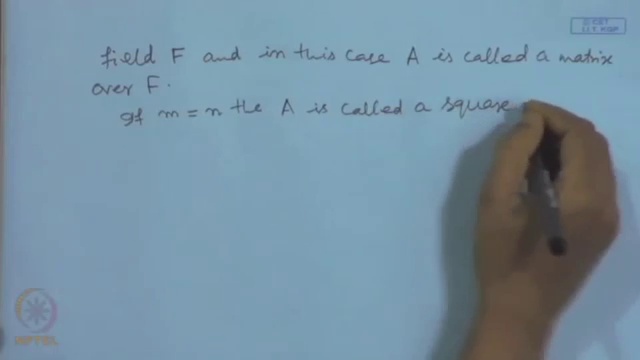 © CET
I.I.T. KGP
field F and in this case A is called a matrix
over F.
If m = n the A is called a square
NPTEL